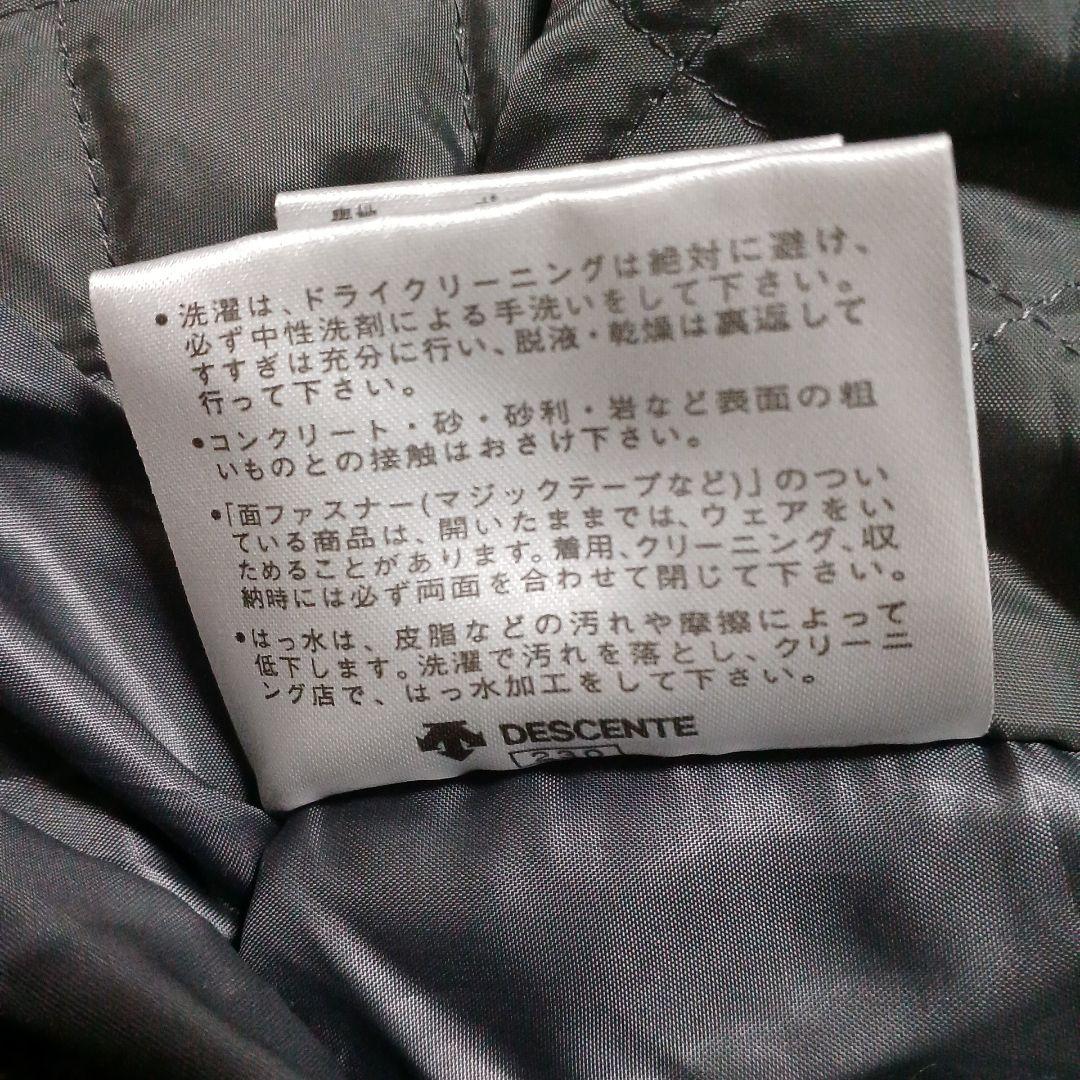 •洗濯は、ドライクリーニングは絶対に避け、
必ず中性洗剤による手洗いをして下さい。
すすぎは充分に行い、脱液・乾燥は裏返して
行って下さい。
•コンクリート・砂・砂利・岩など表面の粗
いものとの接触はおさけ下さい。
•「面ファスナー(マジックテープなど)」のつい
ている商品は、開いたままでは、ウェアをい
ためることがあります。着用、クリーニング、収
納時には必ず両面を合わせて閉じて下さい。
•はっ水は、皮脂などの汚れや摩擦によって
低下します。洗濯で汚れを落とし、クリーニ
ング店で、はっ水加工をして下さい。
DESCENTE
230